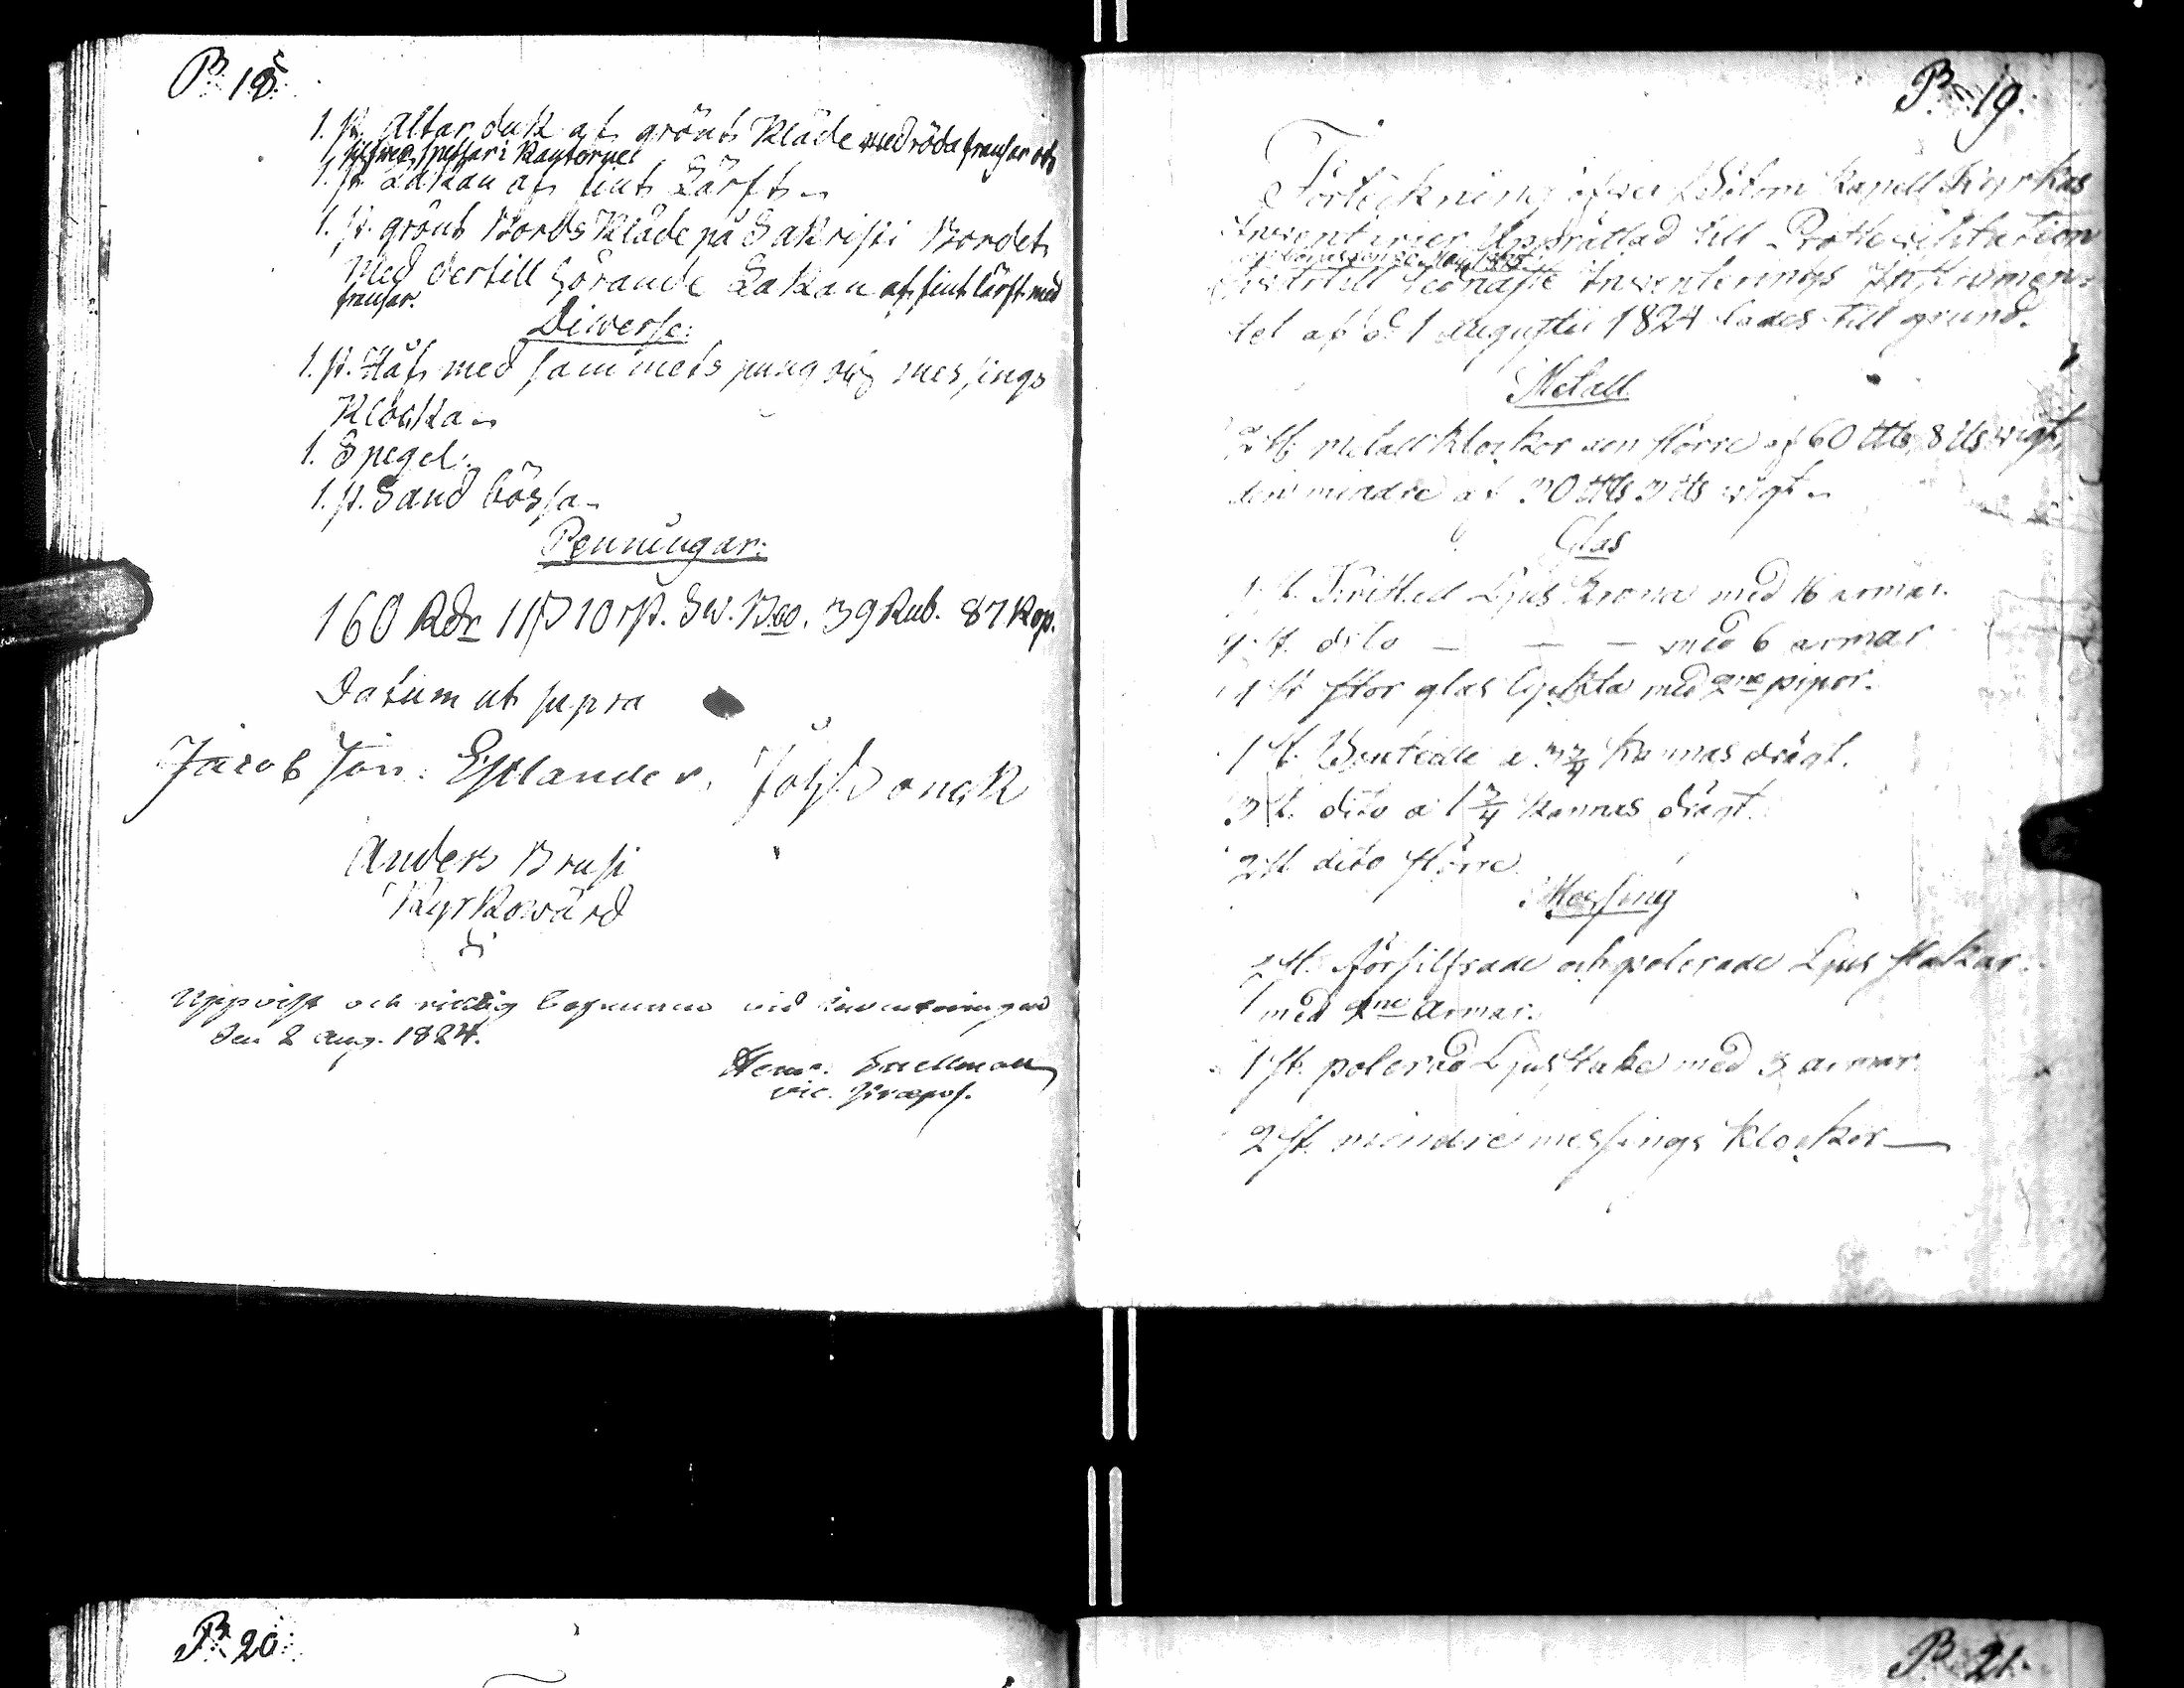 P. 18.
1. st. Altarduk af grönt Kläde med röda fransar och
silfwer spetsar i Kanterne.
1. st. Lakan af fint Lärft.
1. st. grönt Bords Kläde på Sakristi Bordet
Med dertill hörande Lakan af fint lärft med
fransar.
Diverse:
1. st. Håf med sammets pung och messings
Klocka.
1. Spegel.
1. st. Sand bössa.
Penningar:
160 Rdr 11 ß 10 rst. Sw. Bco. 39 Rub. 87 Kop.
Datum ut supra
Jacob Joh: Estlander. Joh:
Anders Brusi
Kyrkowärd
Uppvist och riktig befunnen vid inventeringen
den 2 Aug. 1824.
Henr. Snellman
vic. Præpos.
P. 19.
Förteckning öfwer Kapell Kyrkas
Inventarier Upprättad till Prostevisitation
Inventerings Instrumen-
tet af d. 1 Augusti 1824 lades till grund.
Metall
2 st. metall klockor den större af 60 8 wigt,
den mindre af 30 3 wigt.
Glas
1 st. Ljus Krona med 16 armar.
1 st. dito — — — med 6 armar
1 st stor glas lykta med 2ne pipor.
1 st. Kannas drägt.
3 st. dito a 1 3/4 Kannas drägt.
2 st dito större.
Messing
2 st. försilfrade och polerade Ljus stakar
med 2ne armar.
1 st. polerad Ljusstake med 3 armar
2 st. mindre messings klockor —
P. 20.
P. 21.